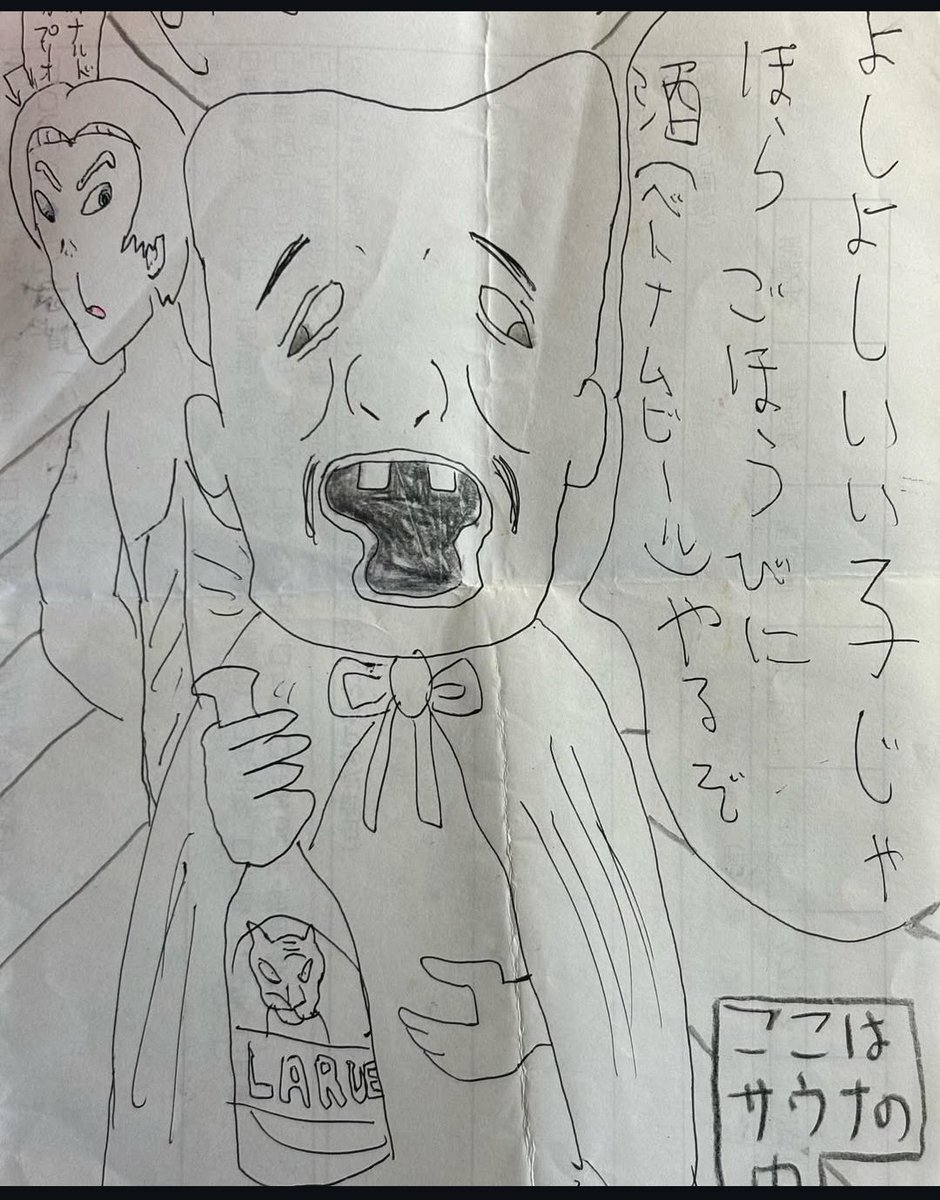 よしよしいい子じゃ
ほら ごほうびに
酒(ベトナムビール)やるぞ
LARUE
ここは
サウナの
中